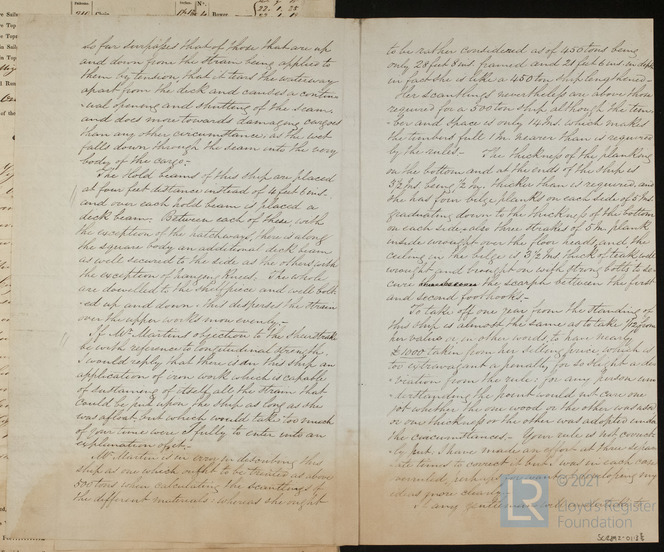 so far surpasses that of those that are up
and down from the strain being applied to
them by tension, that it tears the waterway
apart from the deck and causes a contin-
-ual opening and shutting of the seam,
and does more towards damaging cargoes
than any other circumstance, as the wet
falls down through the seam into the very
body of the cargo.-
The Hold beams of this ship are placed
at four feet distance instead of 4 feet 6 ins.
and over each hold beam is placed a
deck beam. Between each of these, with
the exception of the hatchways, there is along
the square body an additional deck beam
as well secured to the side as the others, with
the exception of hanging knees. The whole
are dowelled to the shelfpiece and well bolt-
-ed up and down - this disperses the strain
over the upper works more evenly.-
If Mr. Martins objection to the sheerstrake
be with reference to longitudinal strength,
I would reply that there is in this ship an
application of iron work which is capable
of sustaining of itself all the strain that
could be put upon the ship as long as she
was afloat but which would take too much
of your time were I fully to enter into an
explanation of it.-
Mr. Martin is in error in describing this
ship as one which ought to be treated as above
500 tons when calculating the scantlings of
the different materials: whereas she ought
to be rather considered as of 450 tons being
only 28 feet 8 ins framed and 21 feet 6 ins in depth
in fact she is like a 450 ton ship lengthened-
Her scantlings nevertheless are above those
required for a 500 ton ship although the tim-
-ber and space is only 14 Ins which makes
the timbers full 1 In nearer than is required
by the rules.- The thickness of the planking
on the bottom and at the ends of the ship is
3½ Ins being ½ In. thicker than is required, and
she has four belge planks on each side of 5 Ins
graduating down to the thickness of the bottom
on each side - also three strakes of 5 In plank
inside wrought over the floor heads, and the
ceiling in the belge is 3½ Ins thick of teak well
wrought and brought on with strong bolts to se-
cure the scarph between the first
and second foothooks.-
To take off one year from the standing of
this ship is almost the same as to take 1/12 from
her value or in other words, to have nearly
£1000 taken from her selling price, which is
too extravagant a penalty for so slight a de-
-viation from the rule; for any person un-
-derstanding the point would not care one
pot whether the one wood or the other was used
or one thickness or the other was adopted under
the circumstances.- Your rule is not correct-
-ly put. I have made an effort at three separ-
ate times to correct it but I was in each case
overruled, perhaps from want of developing my
ideas more clearly.
If any gentleman will
© 2021
LR
Lloyd's Register
Foundation